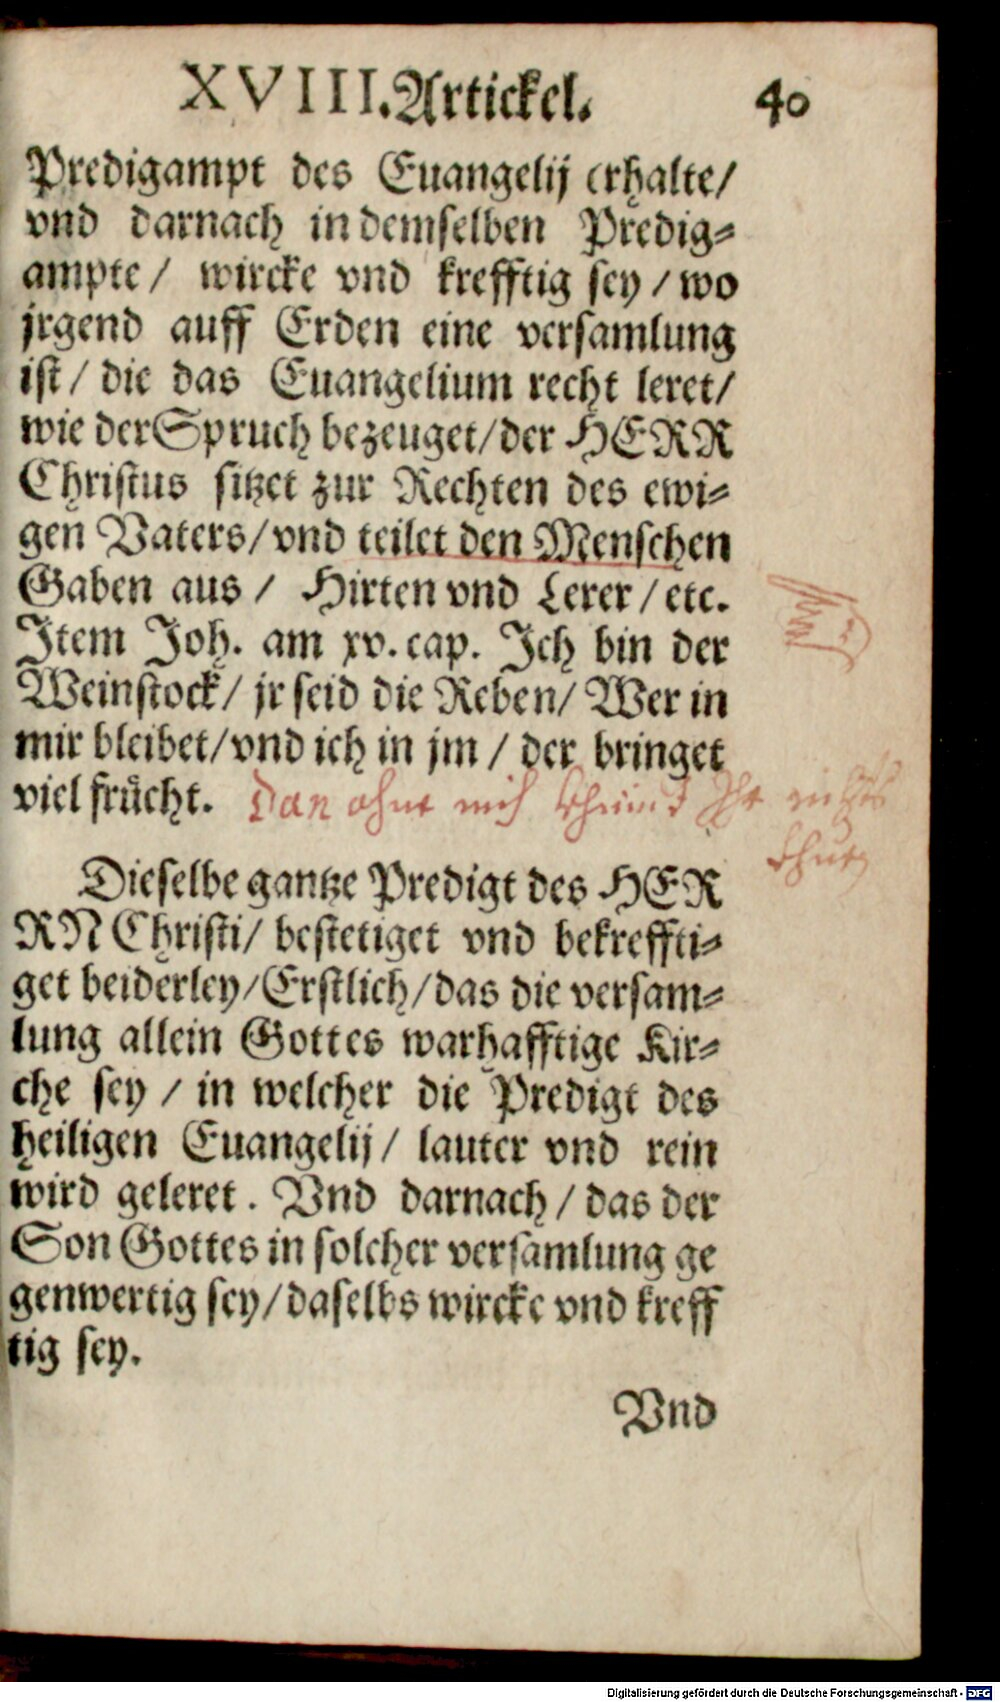 XVIII. Artickel. 40
Predigampt des Euangelij erhalte/
vnd darnach in demselben Predig=
ampte / wircke vnd krefftig sey / wo
jrgend auff Erden eine versamlung
ist / die das Euangelium recht leret/
wie der Spruch bezeuget/der HERR
Christus sitzet zur Rechten des ewi=
gen Vaters/vnd teilet den Menschen
Gaben aus / Hirten vnd Lerer / etc.
Item Joh. am xv. cap. Ich bin der
Weinstock/ jr seid die Reben/ Wer in
mir bleibet/vnd ich in jm / der bringet
viel frücht.
Dan ohne mich Ihr nichts
Dieselbe gantze Predigt des HER
RN Christi/ bestetiget vnd bekreffti=
get beiderley/Erstlich/das die versam=
lung allein Gottes warhafftige Kir=
che sey / in welcher die Predigt des
heiligen Euangelij/ lauter vnd rein
wird geleret. Vnd darnach/ das der
Son Gottes in solcher versamlung ge
genwertig sey/daselbs wircke vnd kreff
tig sey.
Vnd
Digitalisierung gefördert durch die Deutsche Forschungsgemeinschaft - DFG